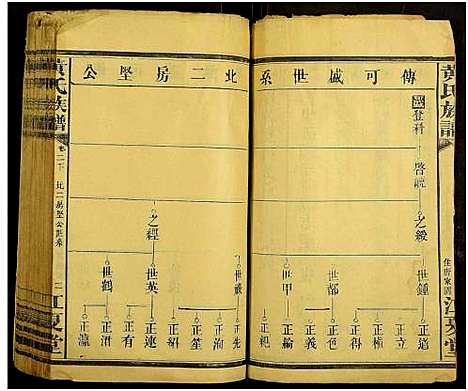 黃氏族譜
江夏堂
傳可威世系北二房堅公
登科
啓
之緩
之經
世鍾
世郁
世甲
世嚴
世英
世鶴
正道
正權
正得
正色
正義
正綸
正紀
正洵
正生
正紹
正連
正有
正洲
正瀛
黃氏族譜
卷二下
北二房堅公世系
二
江夏堂